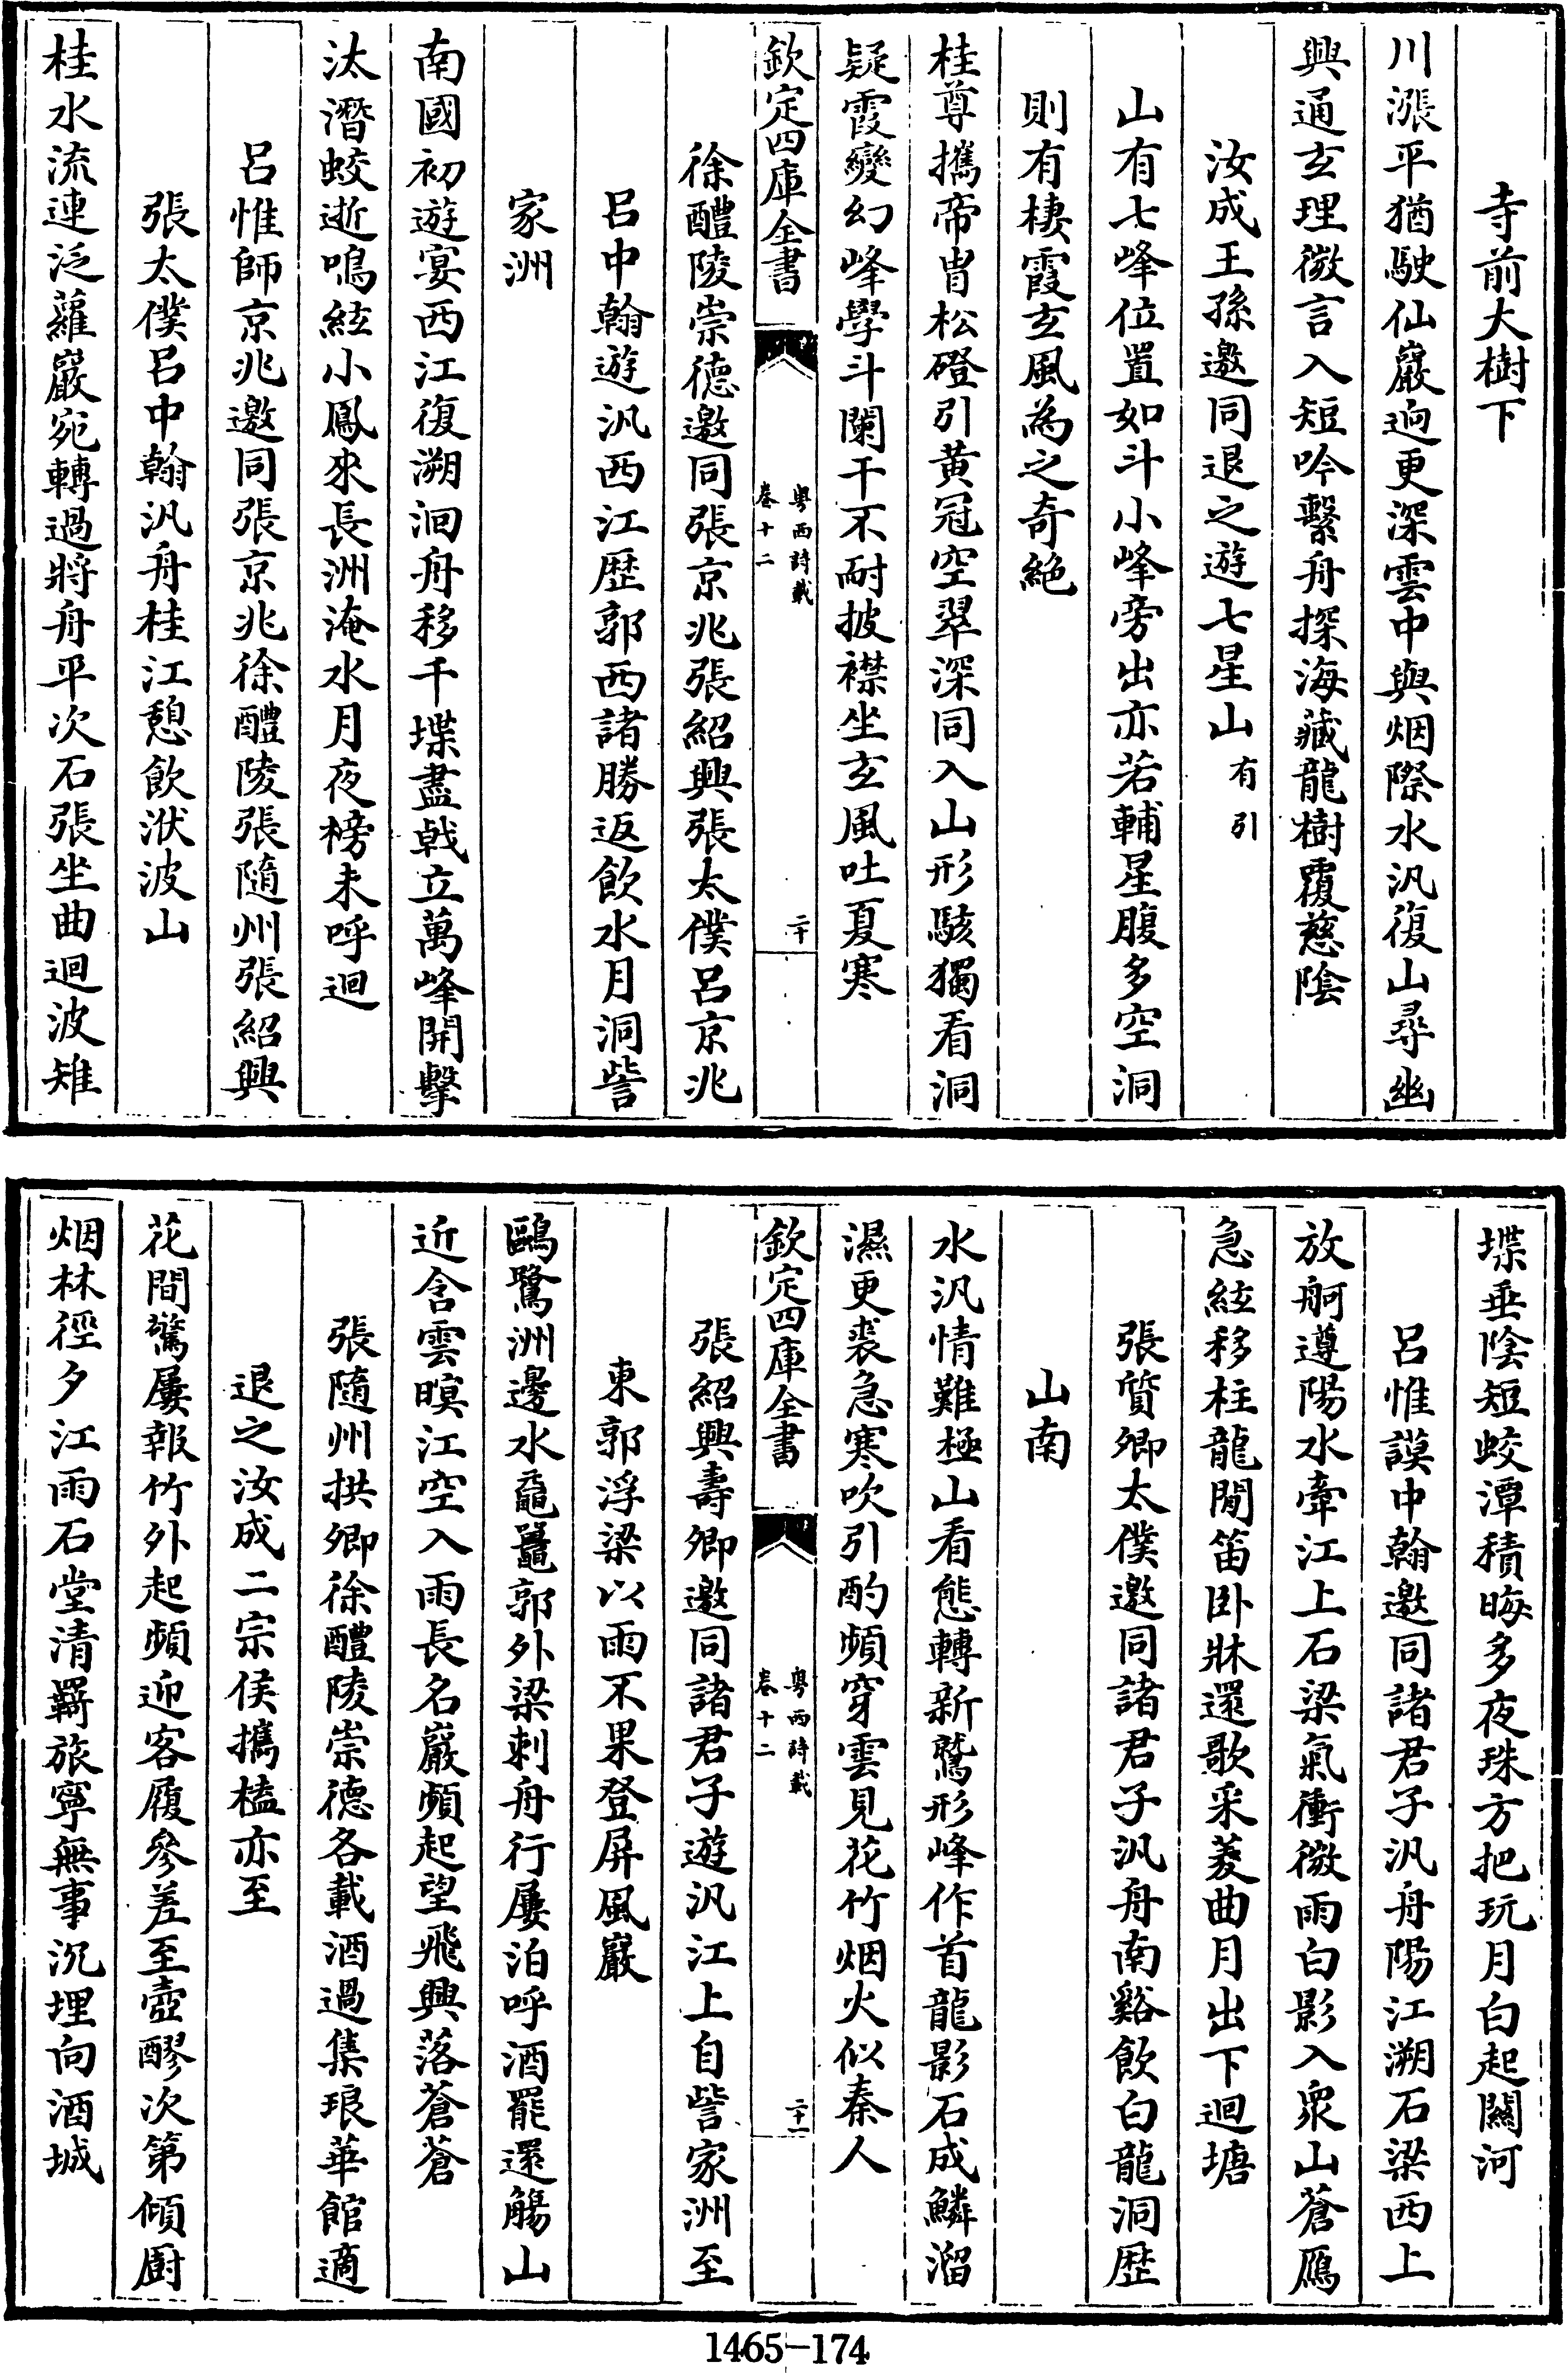 寺前大樹下
川漲平猶駛仙巖逈更深雲中與烟際水汎復山尋幽
興通玄理微言入短吟繫舟探海藏龍樹覆慈陰
汝成王孫邀同退之遊七星山有引
山有七峰位置如斗小峰旁出亦若輔星腹多空洞
則有棲霞玄風為之奇絶
桂尊攜帝胄松磴引黄冠空翠深同入山形駭獨看洞
疑霞變幻峰學斗闌干不耐披襟坐玄風吐夏寒
欽定四庫全書
粤西詩載
卷十二
二十
徐醴陵崇德邀同張京兆張紹興張太僕呂京兆
呂中翰遊汎西江歷郭西諸勝返飲水月洞訾
家洲
南國初遊宴西江復溯洄舟移千堞盡戟立萬峰開擊
汰潛蛟逝鳴絃小鳳來長洲淹水月夜榜未呼迴
呂惟師京兆邀同張京兆徐醴陵張隨州張紹興
張太僕呂中翰汎舟桂江憩飲洑波山
桂水流連泛蘿巖宛轉過將舟平次石張坐曲迴波雉
堞垂陰短蛟潭積晦多夜珠方把玩月白起關河
呂惟謨中翰邀同諸君子汎舟陽江溯石梁西上
放舸遵陽水牽江上石梁氣衝微雨白影入衆山蒼鴈
急絃移柱龍閒笛卧牀還歌采菱曲月出下迴塘
張質卿太僕邀同諸君子汎舟南谿飲白龍洞歷
山南
水汎情難極山看態轉新鷲形峰作首龍影石成鱗溜
濕更裘急寒吹引酌頻穿雲見花竹烟火似秦人
欽定四庫全書
粤西詩載
卷十二
二十一
張紹興壽卿邀同諸君子遊汎江上自訾家洲至
東郭浮梁以雨不果登屏風巖
鷗鷺洲邊水黿鼉郭外梁刺舟行屢泊呼酒罷還觴山
近含雲暝江空入雨長名巖頻起望飛興落蒼蒼
張隨州拱卿徐醴陵崇德各載酒過集琅華館適
退之汝成二宗侯攜榼亦至
花間驚屢報竹外起頻迎客履參差至壺醪次第傾廚
烟林徑夕江雨石堂清羇旅寧無事沉埋向酒城
1465-174